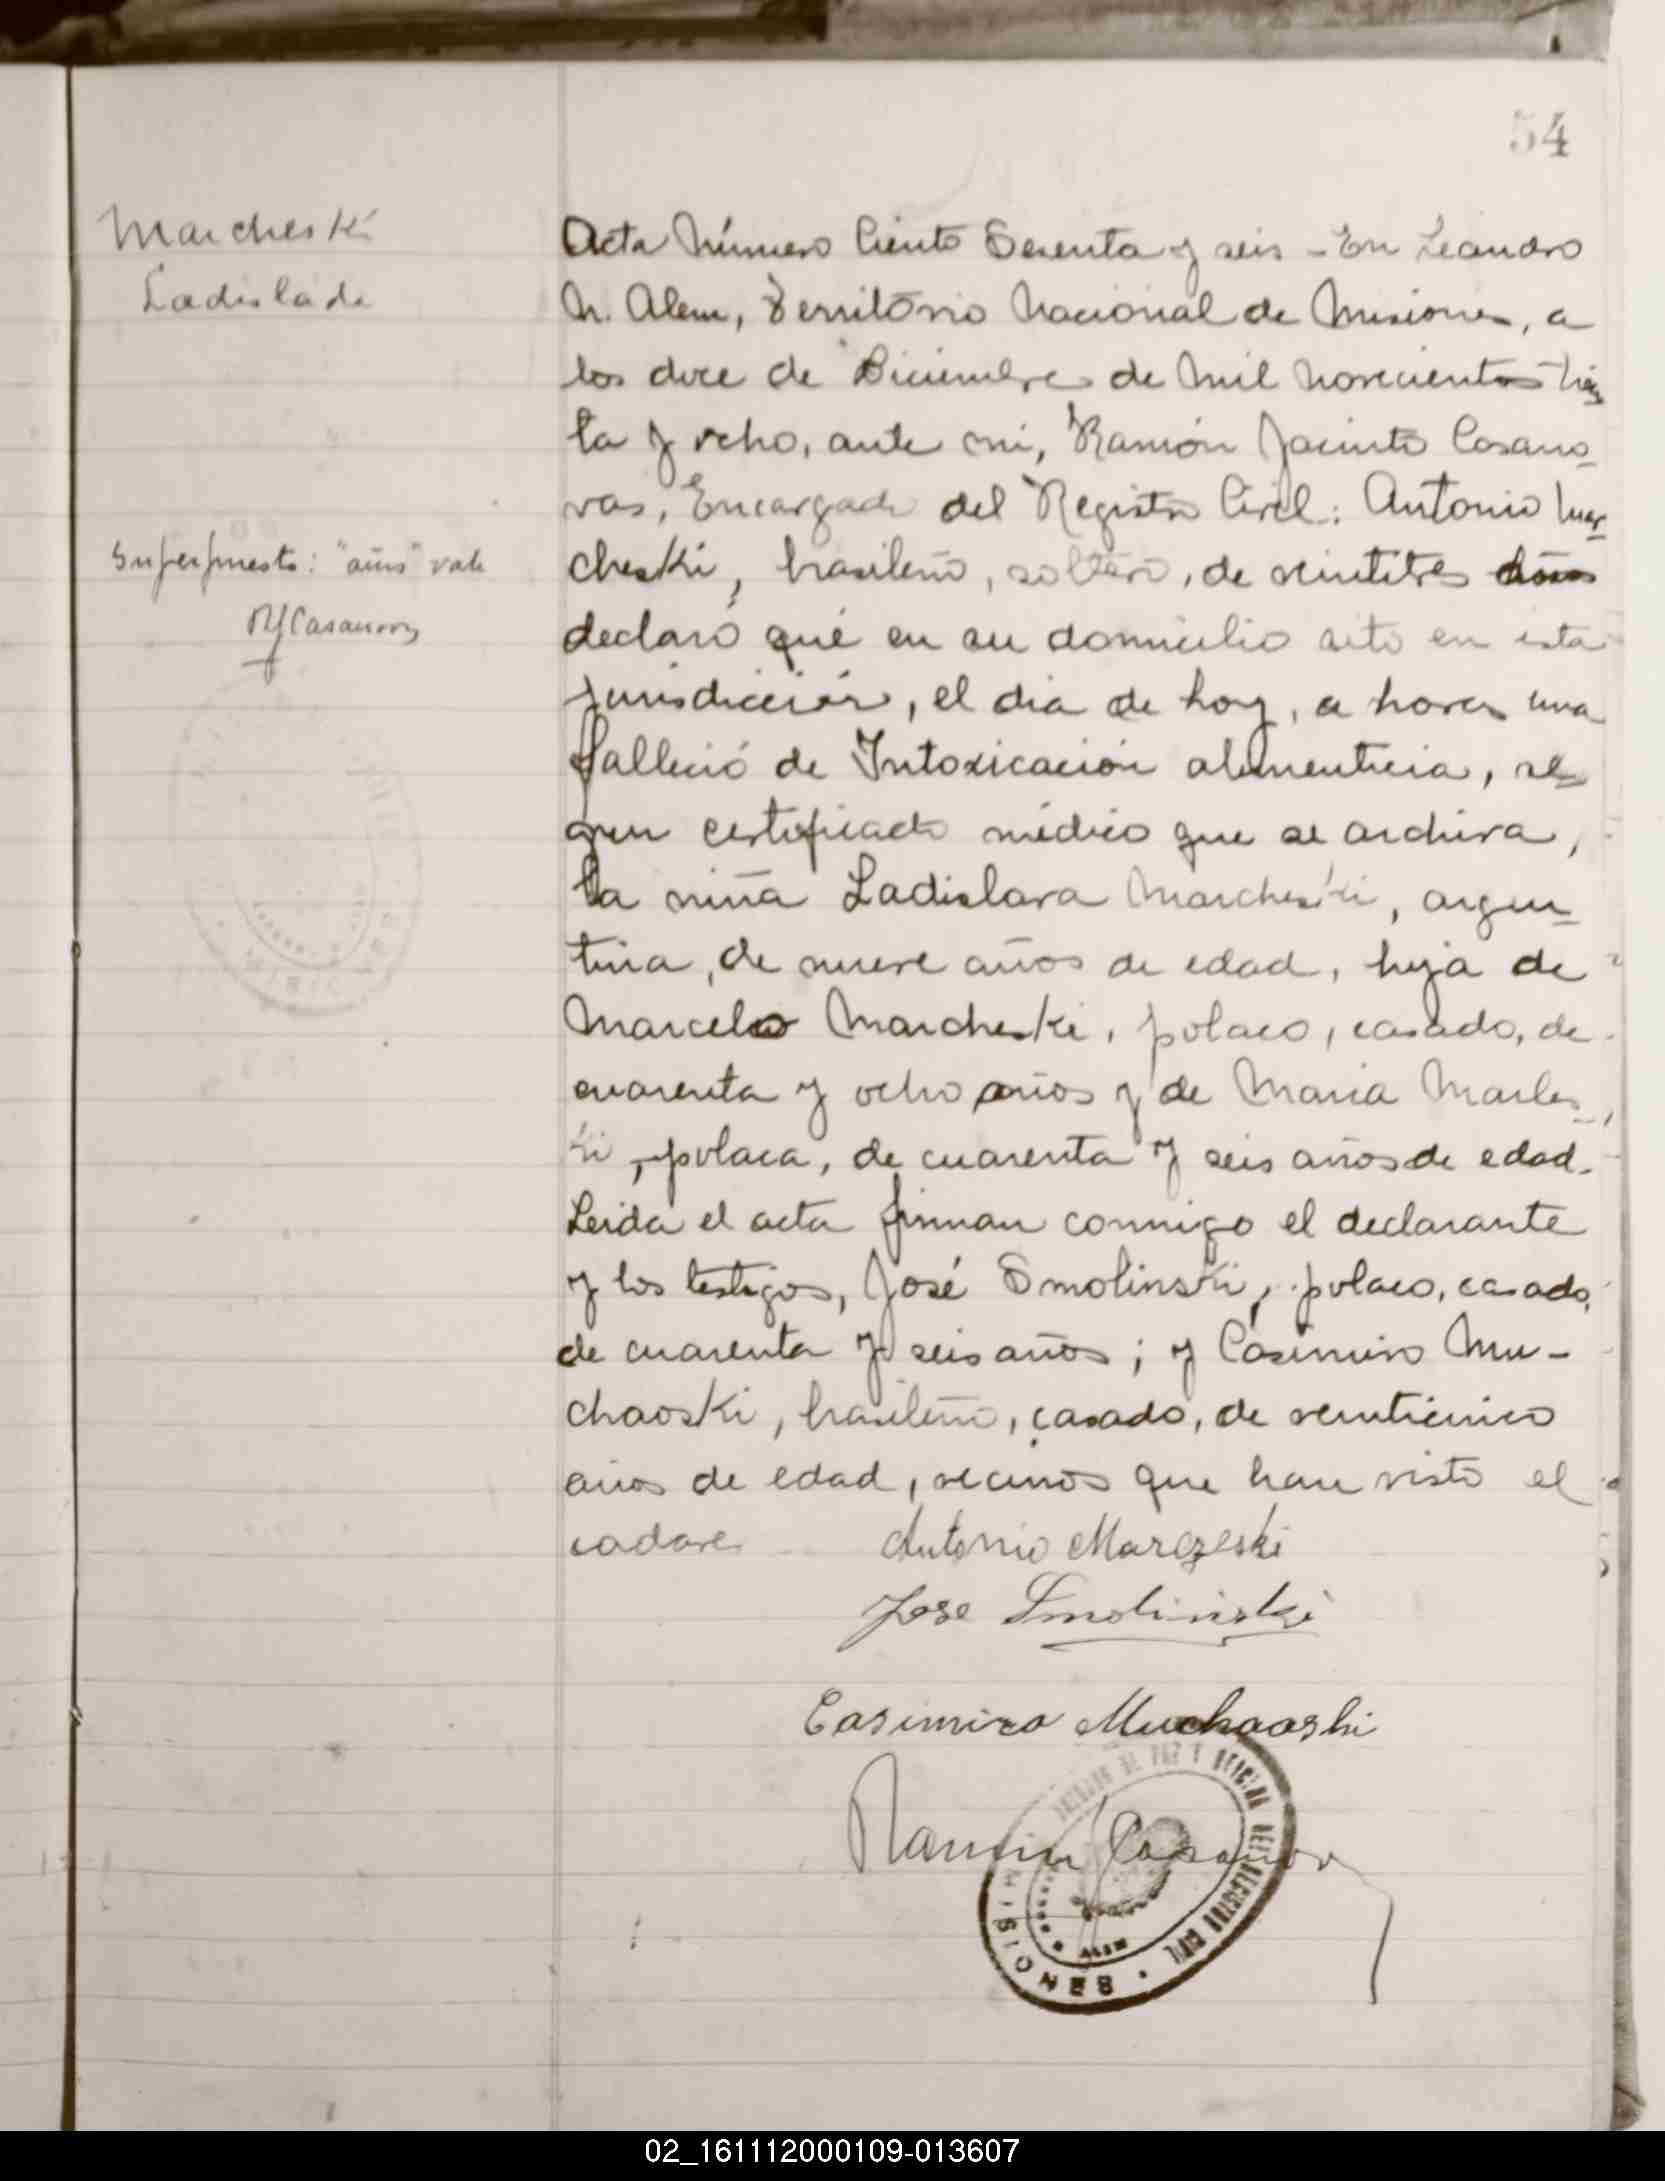 54
Marcheski
Ladislada
Acta Número Ciento Sesenta y seis - En Leandro
N. Alem, Territorio Nacional de Misiones, a
los doce de Diciembre de mil novecientos trein
ta y ocho, ante mi, Ramón Jacinto Casano-
vas, Encargado del Registro Civil: Antonio Mar-
cheski, brasileño, soltero, de veintitres años
Superpuesto: "años" vale
RJCasanovas
declaró que en su domicilio sito en esta
jurisdicción, el dia de hoy, a horas una
falleció de Intoxicación alimenticia, se-
gun certificado médico que se archiva,
la niña Ladislava Marcheski, argen-
tina, de nueve años de edad, hija de
Marcelo Marcheski, polaco, casado, de
cuarenta y ocho años y de Maria Marles-
ki, polaca, de cuarenta y seis años de edad.
Leida el acta firman conmigo el declarante
y los testigos, José Smolinski, polaco, casado,
de cuarenta y seis años; y Casimiro Mu-
chaoski, brasileño, casado, de veinticinco
años de edad, vecinos que han visto el
cadaver
Antonio Marczeski
Jose Smolinski
Casimiro Muchaoski
Ramón Casanovas
DE PAZ Y OFICINA DEL REGISTRO CIVIL
ALEM
MISIONES
02_161112000109-013607